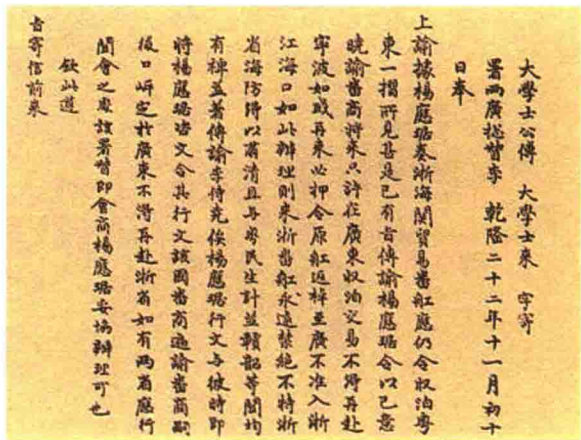 大學士公傅　大學士來　字寄
署兩廣總督李　乾隆二十二年十一月初十
日奉
上諭據楊應琚奏浙海關貿易番舡應仍令收泊粵
東一摺所見甚是已有旨傳諭楊應琚令以己意
曉諭番商將來只許在廣東收泊交易不得再赴
寧波如或再來必押令原舡返棹至廣不准入浙
江海口如此辦理則來浙番舡永遠禁絕不特浙
省海防得以肅清且與粵民生計並贛韶等關均
有裨益著傳諭李侍堯俟楊應琚行文與彼時即
將楊應琚咨文令其行文該國番商遍諭番商嗣
後口岸定於廣東不得再赴浙省如有兩省應行
關會之處該署督即會商楊應琚妥協辦理可也
欽此遵
旨寄信前來